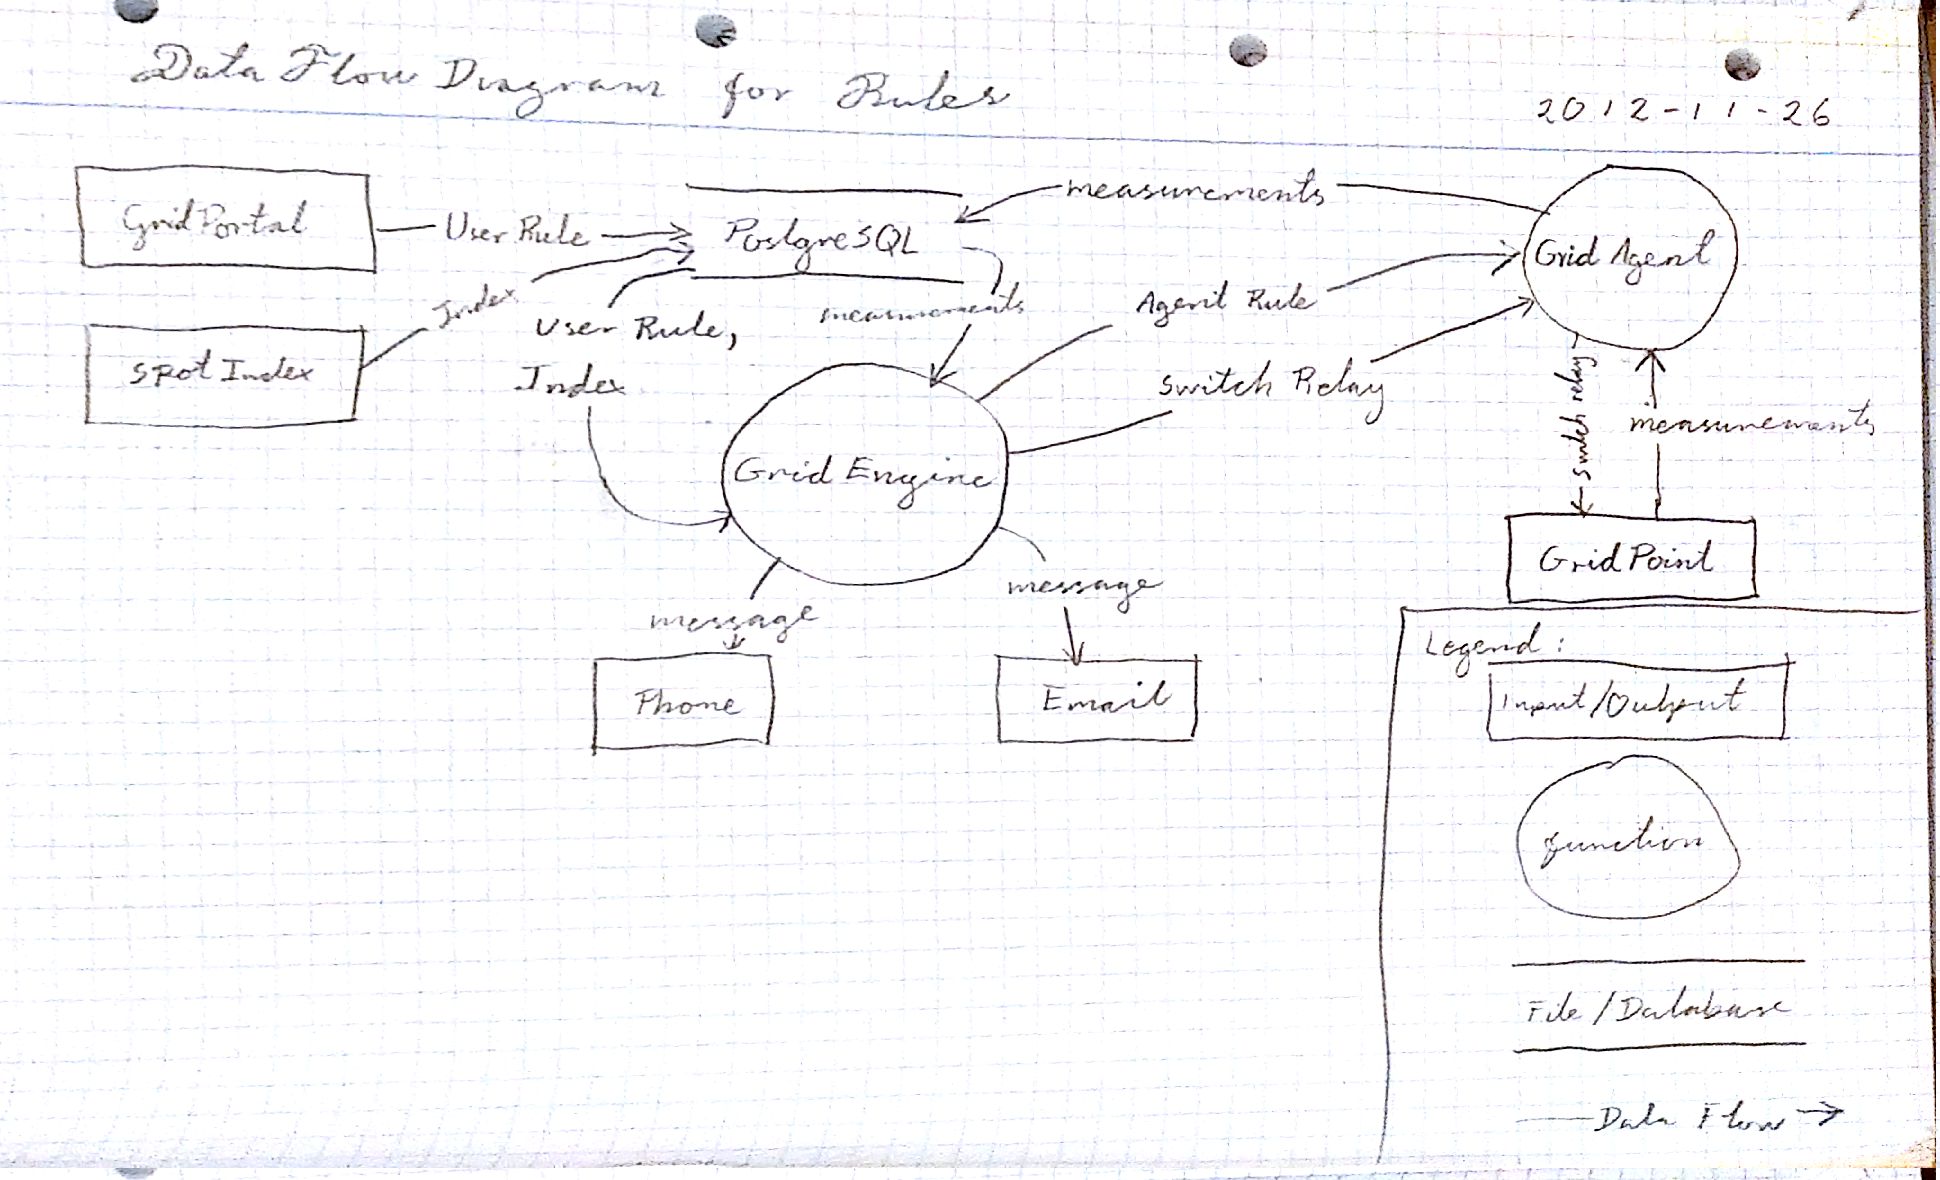 Data Flow Diagram for Rules
2012-11-26
GridPortal
User Rule
PostgreSQL
measurements
Grid Agent
Index
User Rule,
Index
measurements
Agent Rule
Spot Index
Switch Relay
switch relay
measurements
Grid Engine
GridPoint
message
message
Phone
Email
Legend:
Input/Output
function
File/Database
Data Flow